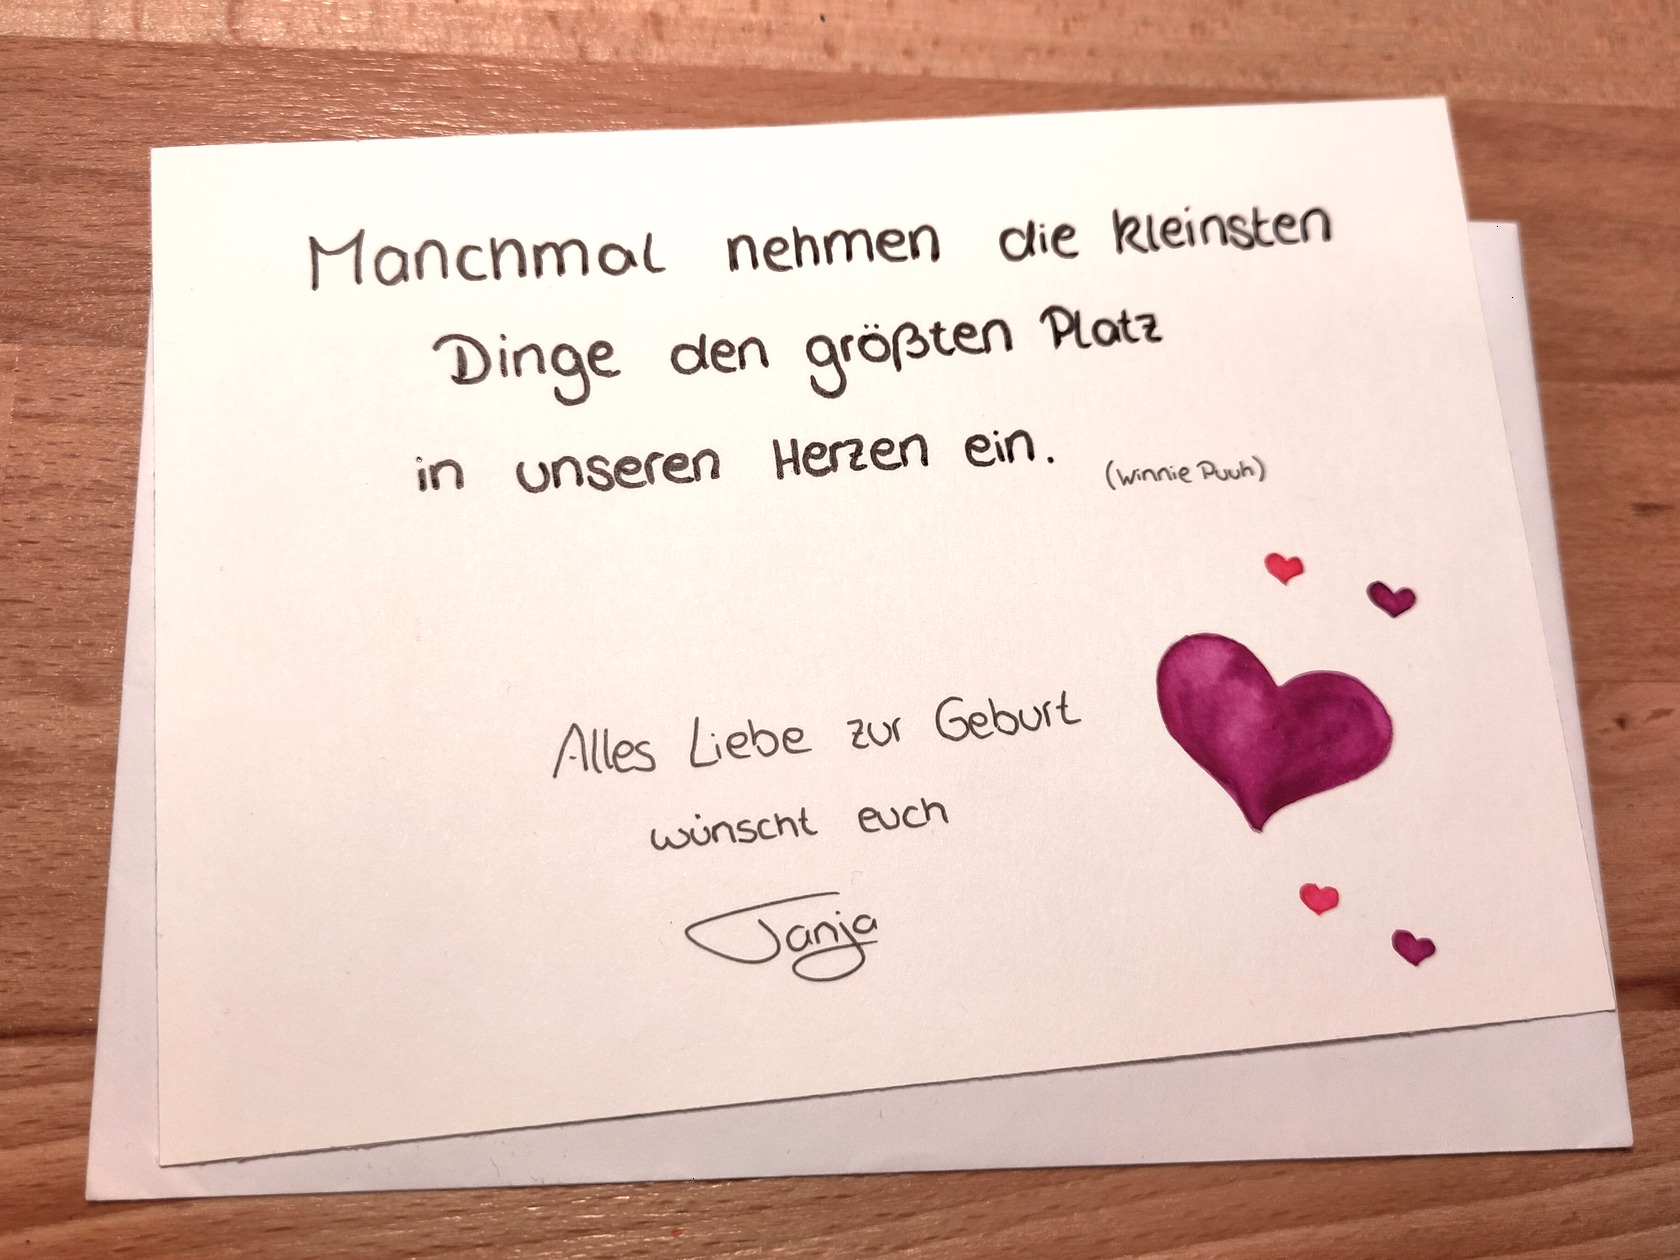 Manchmal nehmen die kleinsten
Dinge den größten Platz
in unseren Herzen ein. (Winnie Puuh)
Alles Liebe zur Geburt
wünscht euch
Tanja